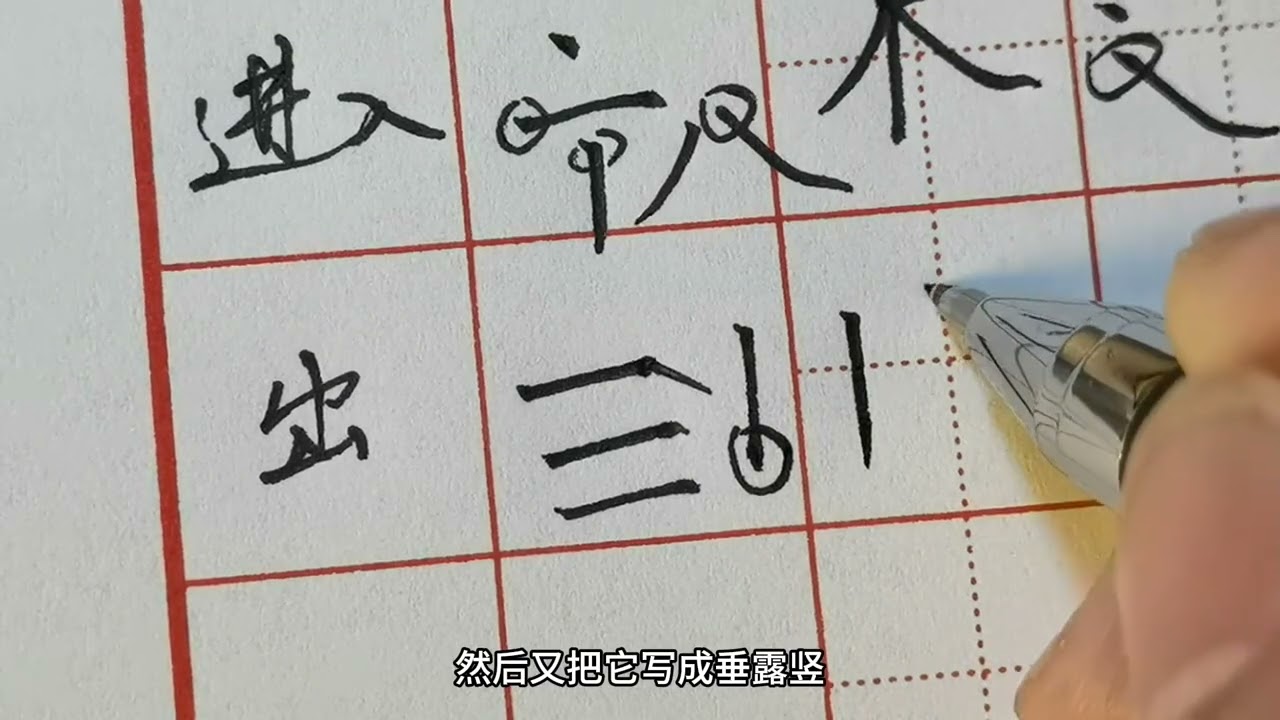 进入 木 文
出 三
然后又把它写成垂露竖